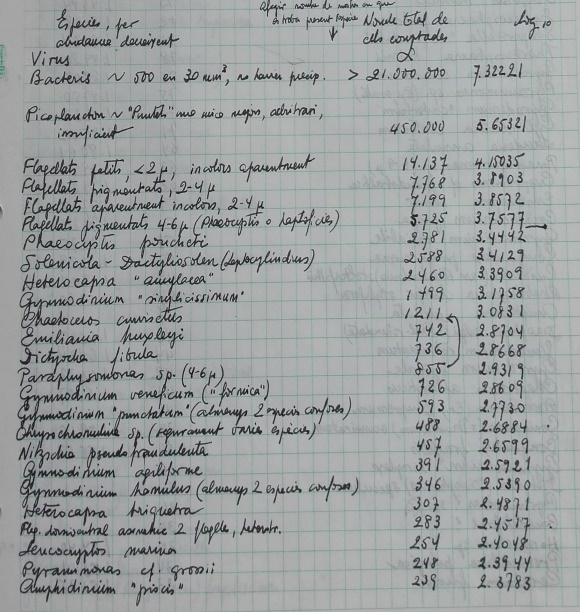 afegir nombre de mostres en que
es troba present
Espècies, per Nombre total de Log 10
abundància decreixent cèls comptades
Virus α
Bacteris ~ 500 en 30 mm³, no haver precip. > 21.000.000 7.32221
Picoplancton ~ "Puntets" una mica majors, arbitrari,
insuficient 450.000 5.65321
Flagellats petits, <2 μ, incolors aparentment 14.137 4.15035
Flagellats pigmentats, 2-4 μ 7.768 3.8903
Flagellats aparentment incolors, 2-4 μ 7.199 3.8572
Flagellats pigmentats 4-6 μ (Phaeocystis o haptofícies) 5.725 3.7577
Phaeocystis poucheti 2781 3.4442
Solenicola - Dactyliosolen (Leptocylindrus) 2588 3.4129
Heterocapsa "amylacea" 2460 3.3909
Gymnodinium "simplicissimum" 1499 3.1758
Chaetoceros curvisetus 1211 3.0831
Emiliania huxleyi 742 2.8704
Dictyocha fibula 736 2.8668
Paraphysomonas sp. (4-6 μ) 855 2.9319
Gymnodinium veneficum ("fòrmica") 726 2.8609
Gymnodinium "punctatum" (almenys 2 espècies confoses) 593 2.7730
Chrysochromulina sp. (segurament varies espècies) 488 2.6884
Nitzschia pseudofraudulenta 457 2.6599
Gymnodinium agiliforme 391 2.5921
Gymnodinium hamulus (almenys 2 espècies confoses) 346 2.5390
Heterocapsa triquetra 307 2.4871
Flag. dorsiventral asimètric 2 flagels, heterotr. 283 2.4517
Leucocryptos marina 254 2.4048
Pyramimonas cf. grossii 248 2.3944
Amphidinium "piscis" 239 2.3783